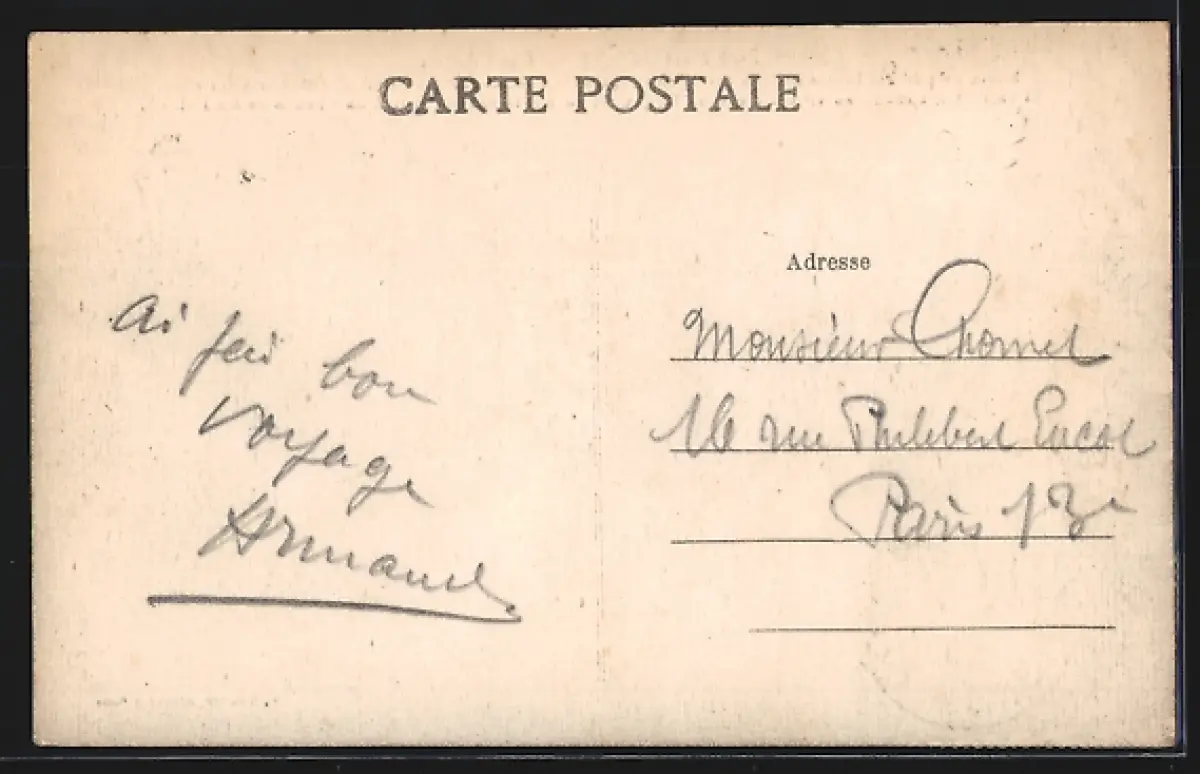 CARTE POSTALE
Ai fai bon
voyage
Armand
Adresse
Monsieur Chomel
16 rue Philibert Lucot
Paris 13e